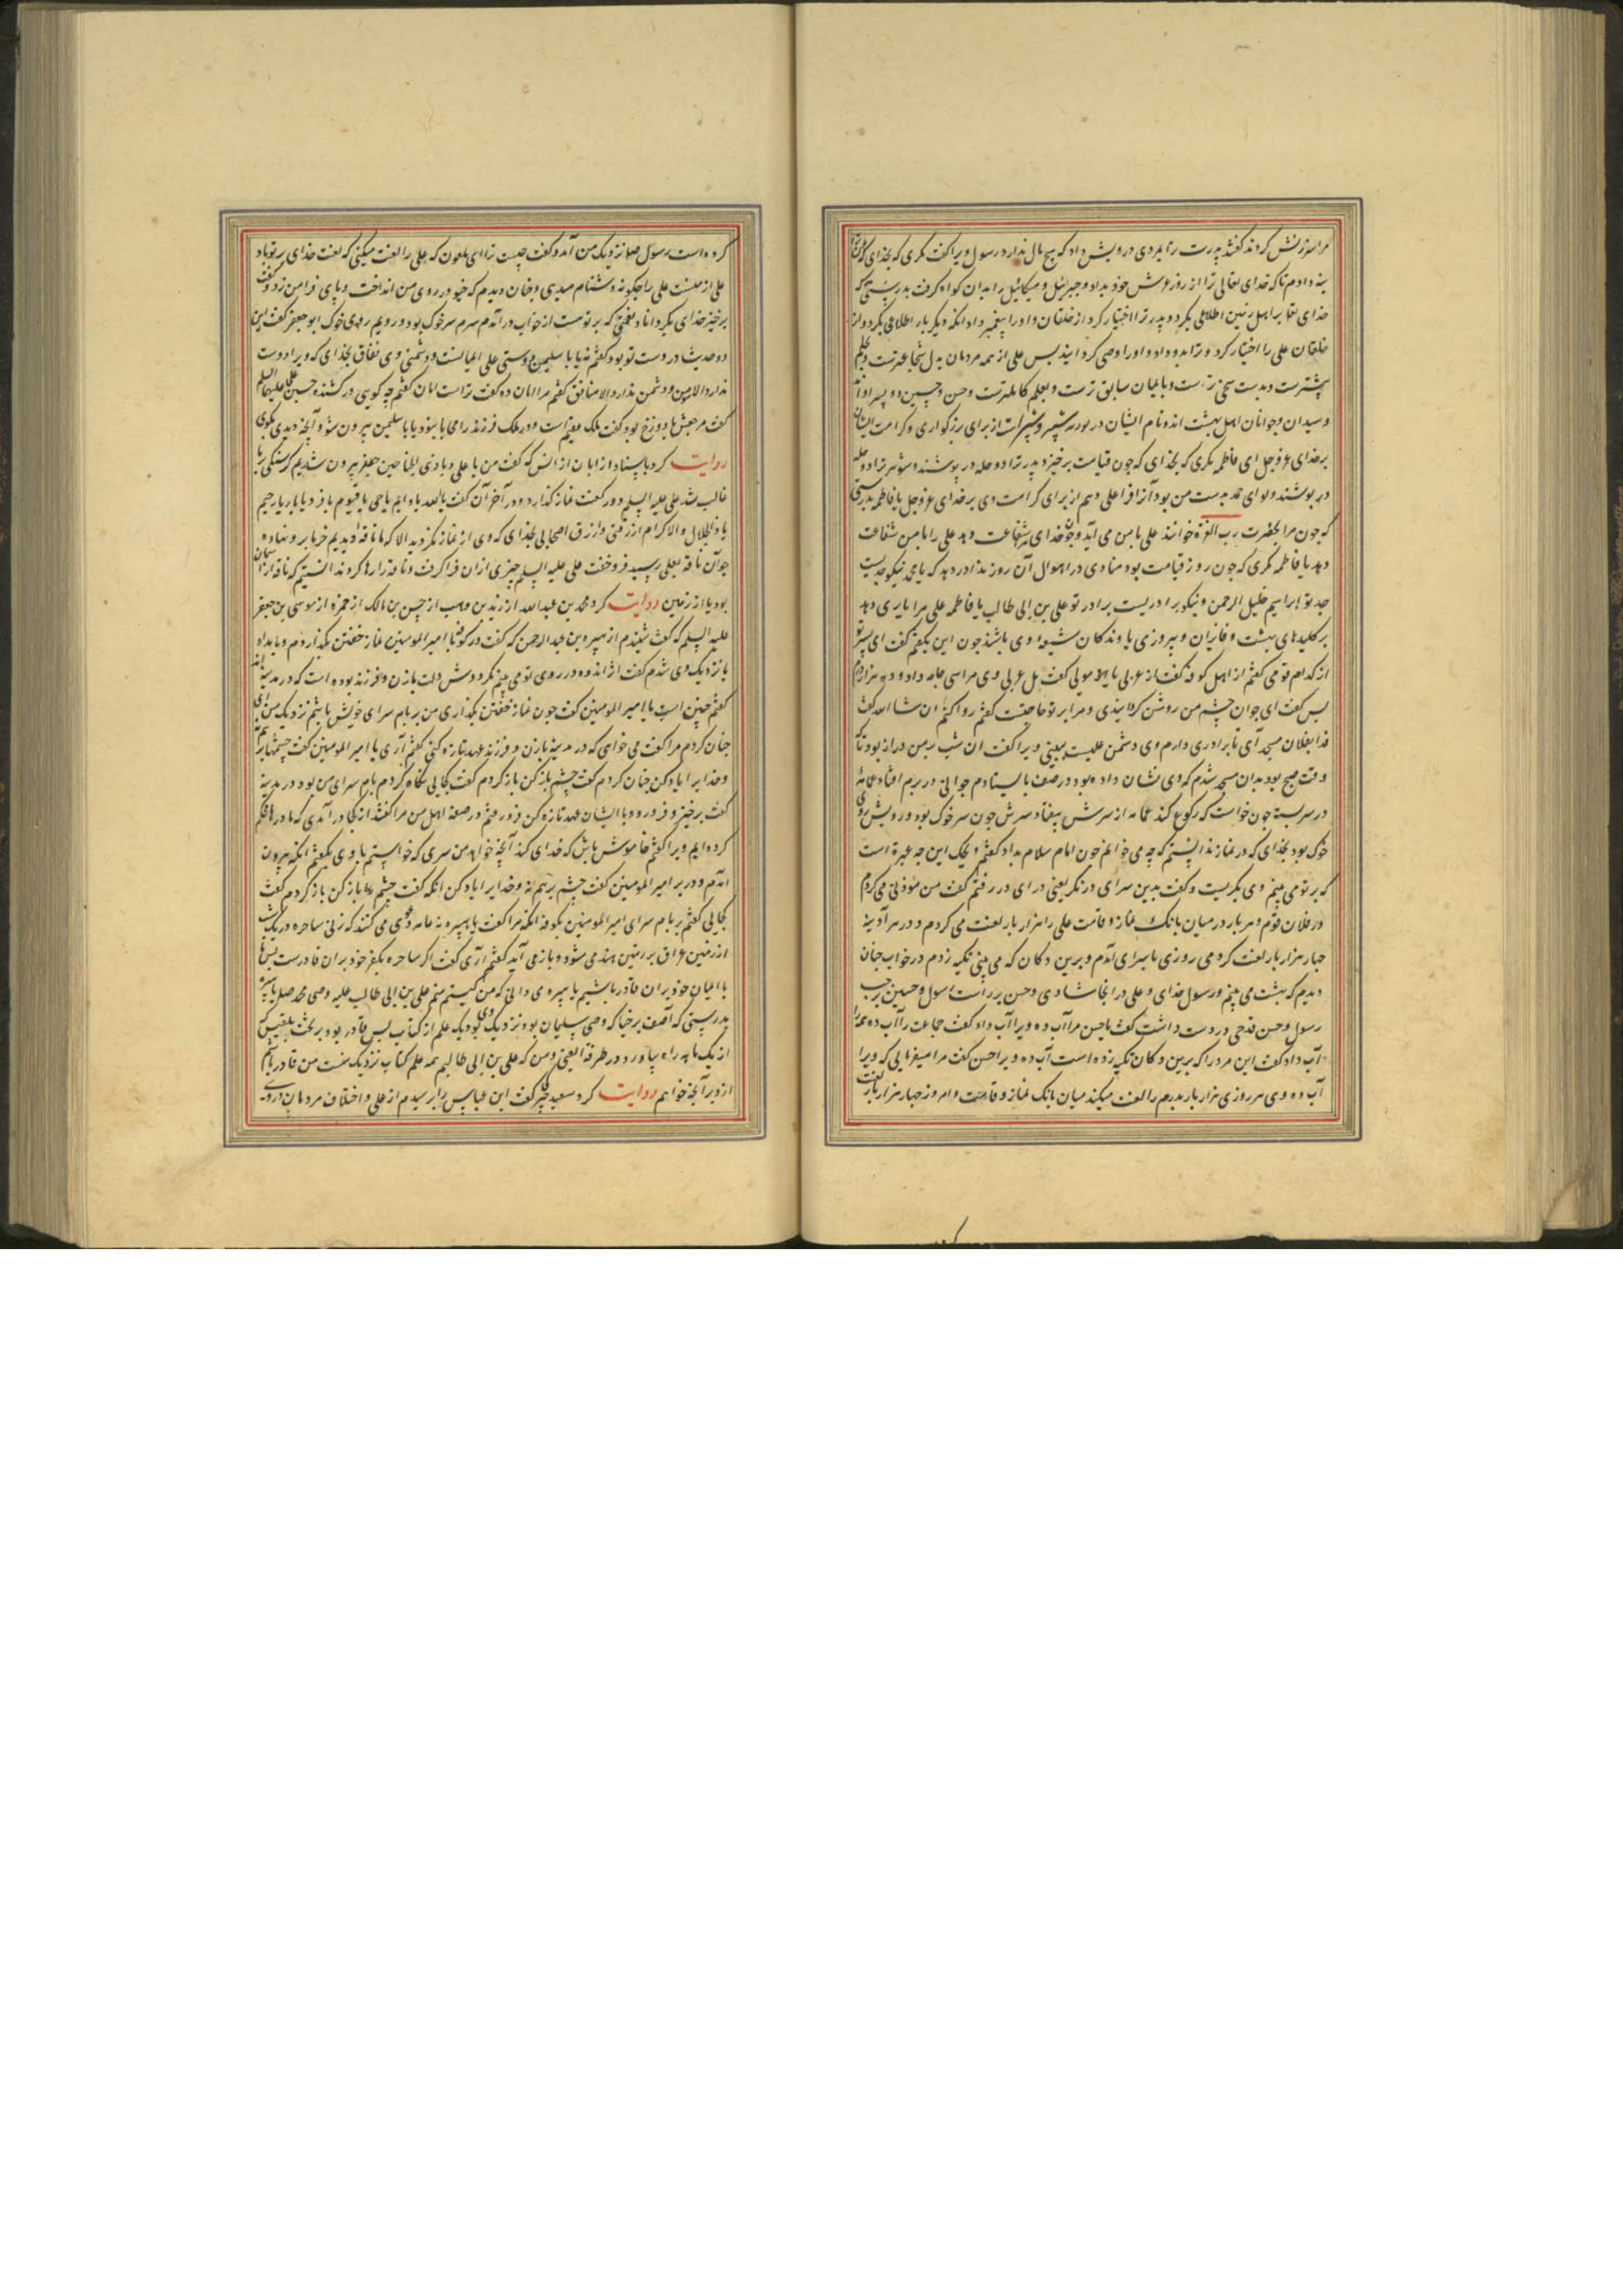 مرا سرزنش کردند گفتند پدرت ترا بمردی درویش داد که هیچ مال ندارد رسول ویرا گفت مگری که بخدای که من ترا
بنه دادم تا که خدای تعالی ترا از زور عرش خود بداد و جبرئیل و میکائیل را بدان گواه گرفت بدرستی که
خدای تعا بر اهل زمین اطلاعی بکرد و پدر ترا اختیار کرد از خلقان و او را پیغمبر داد آنکه دیگر بار اطلاعی بکرد و از
خلقان علی را اختیار کرد و ترا بدو داد و او را وصی کردانید پس علی از همه مردمان بدل شجاعترست و بحلم
بیشترست و بدست سخی ترست و بایمان سابق ترست و بعلم کاملترست و حسن و حسین دو پسر او اند
و سیدان جوانان اهل بهشت اند و نام ایشان در توریه شبر و شبیرست از برای بزرگواری و کرامت ایشان
بر خدای عز و جل ای فاطمه مگری که بخدای که چون قیامت برخیزد پدر ترا دو حله در پوشند و شوهر ترا دو حله
در پوشند و لوای حمد بدست من بود آنرا فرا علی دهم از برای کرامت وی بر خدای عز و جل یا فاطمه بدرستی
که چون مرا بحضرت رب العزة خوانند علی با من می آید و چون خدای مرا شفاعت دهد علی را با من شفاعت
دهد یا فاطمه مگری که چون روز قیامت بود منادی در اهوال آن روز ندا در دهد که یا محمد نیکو جدیست
جد تو ابراهیم خلیل الرحمن و نیکو برادریست برادر تو علی بن ابی طالب یا فاطمه علی مرا یاری دهد
بر کلیدهای بهشت و فایزان و پیروزی یاوندکان شیعه وی باشند چون این بگفتم گفت ای پسر تو
از کدام قومی گفتم از اهل کوفه گفت از عربی یا مولی گفت بل عربی وی مرا سی جامه داد و ده هزار درم
پس گفت ای جوان چشم من روشن گردانیدی و مرا بر تو حاجتست گفتم روا کنم ان شا الله گفت
فردا بفلان مسجد آی تا برادری دارم وی دشمن علیست ببینی ویرا گفت آن شب بر من دراز بود تا که
وقت صبح بود بدان مسجد شدم که وی نشان داده بود در صف بایستادم جوانی در برم افتاد عمامه
در سر بسته چون خواست که رکوع کند عمامه از سرش بیفتاد سرش چون سر خوک بود و رویش روی
خوک بود بخدای که در نماز ندانستم که چه می خوانم چون امام سلام بداد گفتم ویحک این چه عبره است
که بر تو می بینم وی بگریست و گفت بدین سرای در نگر یعنی در ای در رفتم گفت من مؤذنی می کردم
در فلان قوم و هر بار در میان بانک نماز و قامت علی را هزار بار لعنت می کردم و در هر آدینه
چهار هزار بار لعنت کردمی روزی با سرای آمدم و برین دکان که می بینی تکیه زدم در خواب چنان
دیدم که بهشت می بینم و رسول خدای و علی در انجا شادی و حسن بر راست رسول و حسین بر چب
رسول و حسن قدحی در دست داشت گفت یا حسن مرا آب ده ویرا آب داد گفت جماعت را آب ده همه را
آب داد گفت این مرد را که برین دکان تکیه زده است آب ده ویرا حسن گفت مرا میفرمایی که ویرا
آب ده و وی هر روزی هزار بار پدرم را لعنت میکند میان بانک نماز و قامت و امروز چهار هزار بار لعنت
کرده است رسول صلع نزدیک من آمد و گفت چیست ترا ای ملعون که علی را لعنت میکنی که لعنت خدای بر تو باد
علی از منست علی را چگونه دشنام میدهی و چنان دیدم که خیو در روی من انداخت و پای فرا من زد و گفت
برخیز خدای بگرداناد نعمتی که بر توست از خواب در آمدم سرم سر خوک بود و رویم روی خوک ابو جعفر گفت این
دو حدیث در دست تو بود گفتم نه یا با سلیمن دوستی علی ایمانست و دشمنی وی نفاق بخدای که ویرا دوست
ندارد الا مومن و دشمن ندارد الا منافق گفتم مرا امان ده گفت تراست امان گفتم چه کویی در کشنده حسین علی علیهما السلم
گفت مرجعش با دوزخ بود گفت ملک عقیم است و در ملک فرزند را محابا نبود یا با سلیمن بیرون شو و آنچه دیدی بگوی
روایت کرد باسناد از ابان از انس که گفت من با علی و با ذی الجناحین جعفر بیرون شدیم گرسنگی بما
غالب شد علی علیه السلم دو رکعت نماز گذارد و در آخر آن گفت یا الله یا دایم یا حی یا قیوم یا فرد یا بار یا رحیم
یا ذا الجلال و الاکرام ارزقنی و ارزق اصحابی بخدای که وی از نماز نگردید الا که ما ناقه دیدیم خرما بر و نهاده
چو آن ناقه بعلی رسید فرو خفت علی علیه السلم چیزی از آن فرا گرفت و ناقه را رها کردند ندانستیم که ناقه از آسمان
بود یا از زمین روایت کرد محمد بن عبد الله از زید بن وهب از حسن بن مالک از حمزه از موسی بن جعفر
علیه السلم که گفت شنیدم از هبیره بن عبد الرحمن که گفت در کوفه با امیر المومنین نماز خفتن بگذاردم و بامداد
با نزدیک وی شدم گفت اندوه در روی تو می بینم مگر دوش دلت با زن و فرزند بوده است که در مدینه اند
گفتم چنین است یا امیر المومنین گفت چون نماز خفتن بگذاری من بر بام سرای خویش باشم نزدیک من آی
چنان کردم مرا گفت می خواهی که در مدینه با زن و فرزند عهد تازه کنی گفتم آری یا امیر المومنین گفت چشمها بر هم نه
و خدایرا یاد کن چنان کردم گفت چشم باز کن باز کردم گفت کجایی نگاه کردم بام سرای من بود در مدینه
گفت برخیز و فرو رو و با ایشان عهد تازه کن فرو رفتم در صفه اهل من مرا گفتند از کجا در آمدی که ما درها محکم
کرده ایم ویرا گفتم خاموش باش که خدای کند آنچه خواهد من سری که خواستم با وی بگفتم آنکه بیرون
آمدم و در بر امیر المومنین گفت چشم بر هم نه و خدایرا یاد کن آنکه گفت چشم را باز کن باز کردم گفت
کجایی گفتم بر بام سرای امیر المومنین بکوفه آنکه مرا گفت یا هبیره نه عامه دعوی می کنند که زنی ساحره در یک شب
از زمین عراق بر زمین هند می شود و باز می آید گفتم آری گفت اگر ساحره بکفر خود بر آن قادرست پس ما
با ایمان خود بر آن قادر باشیم یا هبیره می دانی که من کیستم منم علی بن ابی طالب علیه وصی محمد صلع یا هبیره
بدرستی که آصف برخیا که وصی سلیمان بود نزدیک وی بود یک علم از کتاب پس قادر بود بر تخت بلقیس که
از یک ماهه راه بیاورد در طرفة العینی و من که علی بن ابی طالبم همه علم کتاب نزدیک منست من قادر باشم
از دیر آنچه خواهم روایت کرد سعید جبیر گفت ابن عباس را پرسیدم از علی و اختلاف مردمان در وی